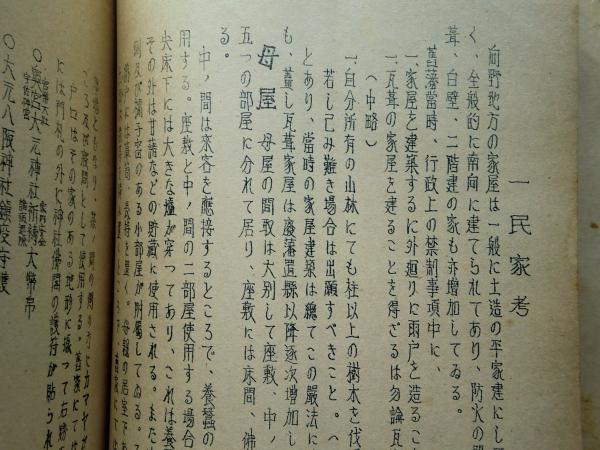 一 民家考
向野地方の家屋は一般に土造の平家建にし
く、全般的に南向に建てられてあり、防火の
葺、白壁、二階建の家も亦増加してゐる。
舊藩當時、行政上の禁制事項中に、
一、家屋を建築するに外廻りに雨戸を造ること
一、瓦葺の家屋を建ることを得ざるは勿論瓦
(中略)
一、自分所有の山林にても柱以上の樹木を伐
若し已み難き場合は出願すべきこと。
とあり、當時の家屋建築は總てこの嚴法に
も、蓋し瓦葺家屋は廢藩置縣以降逐次増加し
母屋 母屋の間取は大別して座敷、中ノ
五つの部屋に分れて居り、座敷には床間、佛
る。
中ノ間は來客を應接するところで、養蠶の
用する。座敷と中ノ間の二部屋使用する場合
央床下には大きな爐が穿つてあり、これは養
その外は甘藷などの貯藏に使用される。また
の小部屋が附屬してゐる。
として使用する。舊家にては
戸口はその家のある地形に據つて右勝
には門札の外に神社佛閣の護符が貼られ
〇奥宮大元神社祈祷大幣帛
〇大元八阪神社鎮疫守護